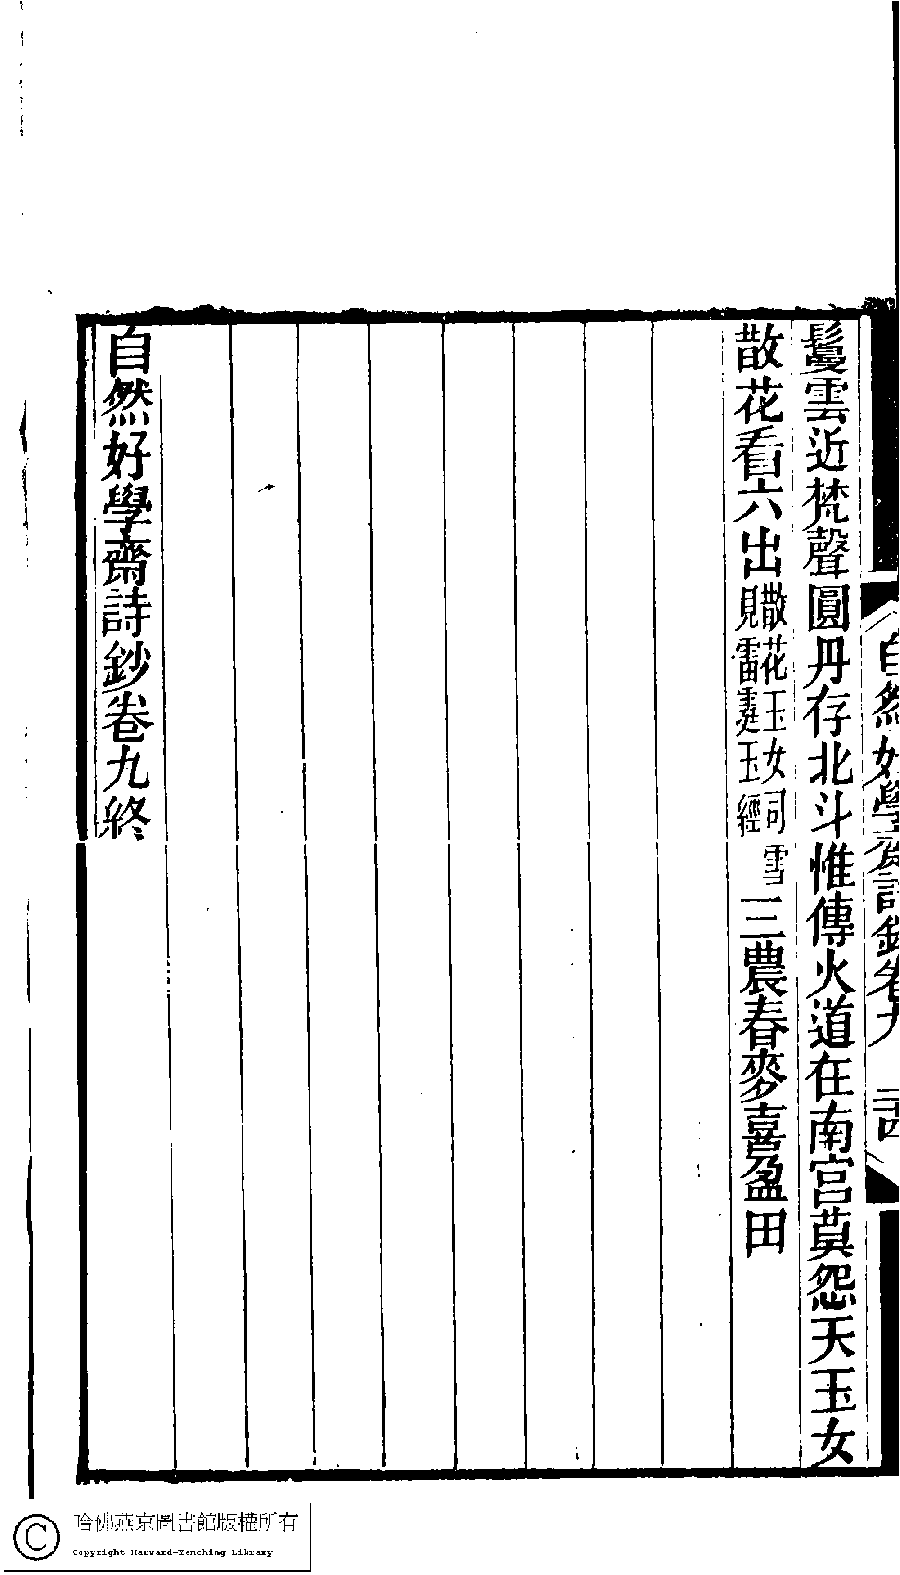 鬘雲近梵聲圓丹存北斗惟傳火道在南宮莫怨天玉女
散花看六出散花玉女司雪見雷霆玉經三農春麥喜盈田
自然好學齋詩鈔卷九終
自然好學齋詩鈔卷九 三四
哈佛燕京圖書館版權所有
Copyright Harvard-Yenching Library